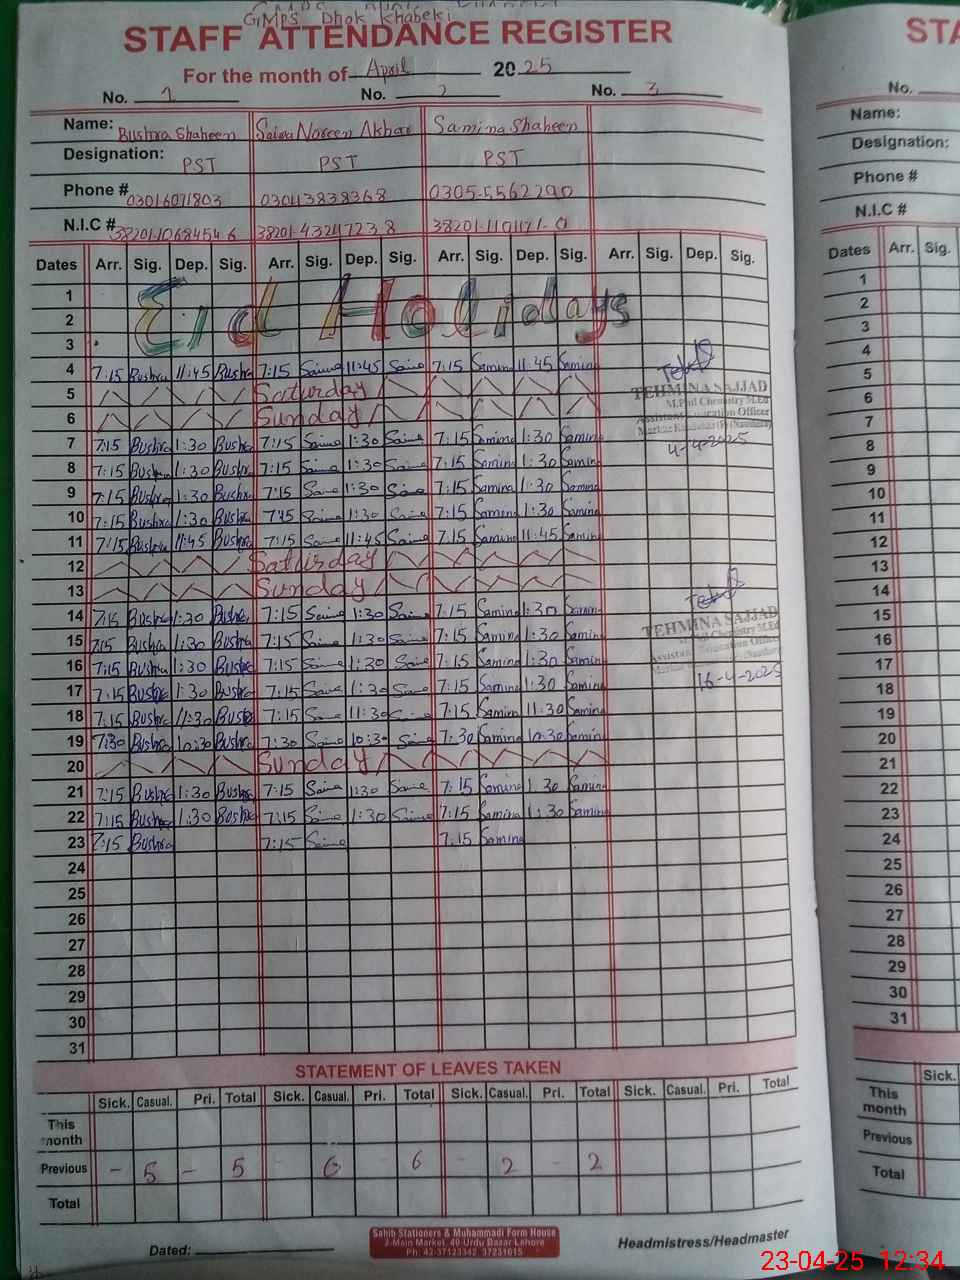 GMPS Dhok Khabeki
STAFF ATTENDANCE REGISTER
For the month of April 2025
No. 1 No. 2 No. 3
Name: Bushra Shaheen Saiqa Noreen Akhtar Samina Shaheen
Designation: PST PST PST
Phone # 03016071803 03043838368 0305-5562290
N.I.C #
Dates Arr. Sig. Dep. Sig. Arr. Sig. Dep. Sig. Arr. Sig. Dep. Sig. Arr. Sig. Dep. Sig.
1
2 Eid Holidays
3
4 7:15 Bushra 11:45 Bushra 7:15 11:45 7:15 Samina 11:45 Samina
5 Saturday
6 Sunday
7 7:15 Bushra 1:30 Bushra 7:15 1:30 7:15 Samina 1:30 Samina
8 7:15 Bushra 1:30 Bushra 7:15 1:30 7:15 Samina 1:30 Samina
9 7:15 Bushra 1:30 Bushra 7:15 1:30 7:15 Samina 1:30 Samina
10 7:15 Bushra 1:30 Bushra 7:15 1:30 7:15 Samina 1:30 Samina
11 7:15 Bushra 11:45 Bushra 7:15 11:45 7:15 Samina 11:45 Samina
12 Saturday
13 Sunday
14 7:15 Bushra 1:30 Bushra 7:15 1:30 7:15 Samina 1:30 Samina
15 7:15 Bushra 1:30 Bushra 7:15 1:30 7:15 Samina 1:30 Samina
16 7:15 Bushra 1:30 Bushra 7:15 1:30 7:15 Samina 1:30 Samina
17 7:15 Bushra 1:30 Bushra 7:15 1:30 7:15 Samina 1:30 Samina
18 7:15 Bushra 11:30 Bushra 7:15 11:30 7:15 Samina 11:30 Samina
19 7:30 Bushra 10:30 Bushra 7:30 10:30 7:30 Samina 10:30 Samina
20 Sunday
21 7:15 Bushra 1:30 Bushra 7:15 1:30 7:15 Samina 1:30 Samina
22 7:15 Bushra 1:30 Bushra 7:15 1:30 7:15 Samina 1:30 Samina
23 7:15 Bushra 7:15 7:15 Samina
24
25
26
27
28
29
30
31
TEHMINA SAJJAD
M.Phil Chemistry M.Ed
Assistant Education Officer
4-4-2025
TEHMINA SAJJAD
M.Phil Chemistry M.Ed
Assistant Education Officer
16-4-2025
STATEMENT OF LEAVES TAKEN
Sick. Casual. Pri. Total Sick. Casual. Pri. Total Sick. Casual. Pri. Total Sick. Casual. Pri. Total
This month
Previous - 5 - 5 - 6 - 6 - 2 - 2
Total
Sahib Stationers & Muhammadi Form House
2-Main Market, 40 Urdu Bazar Lahore
Ph: 42-37123342 37231015
Dated: Headmistress/Headmaster
STA
No.
Name:
Designation:
Phone #
N.I.C #
Dates Arr. Sig.
1
2
3
4
5
6
7
8
9
10
11
12
13
14
15
16
17
18
19
20
21
22
23
24
25
26
27
28
29
30
31
Sick.
This month
Previous
Total
23-04-25 12:34